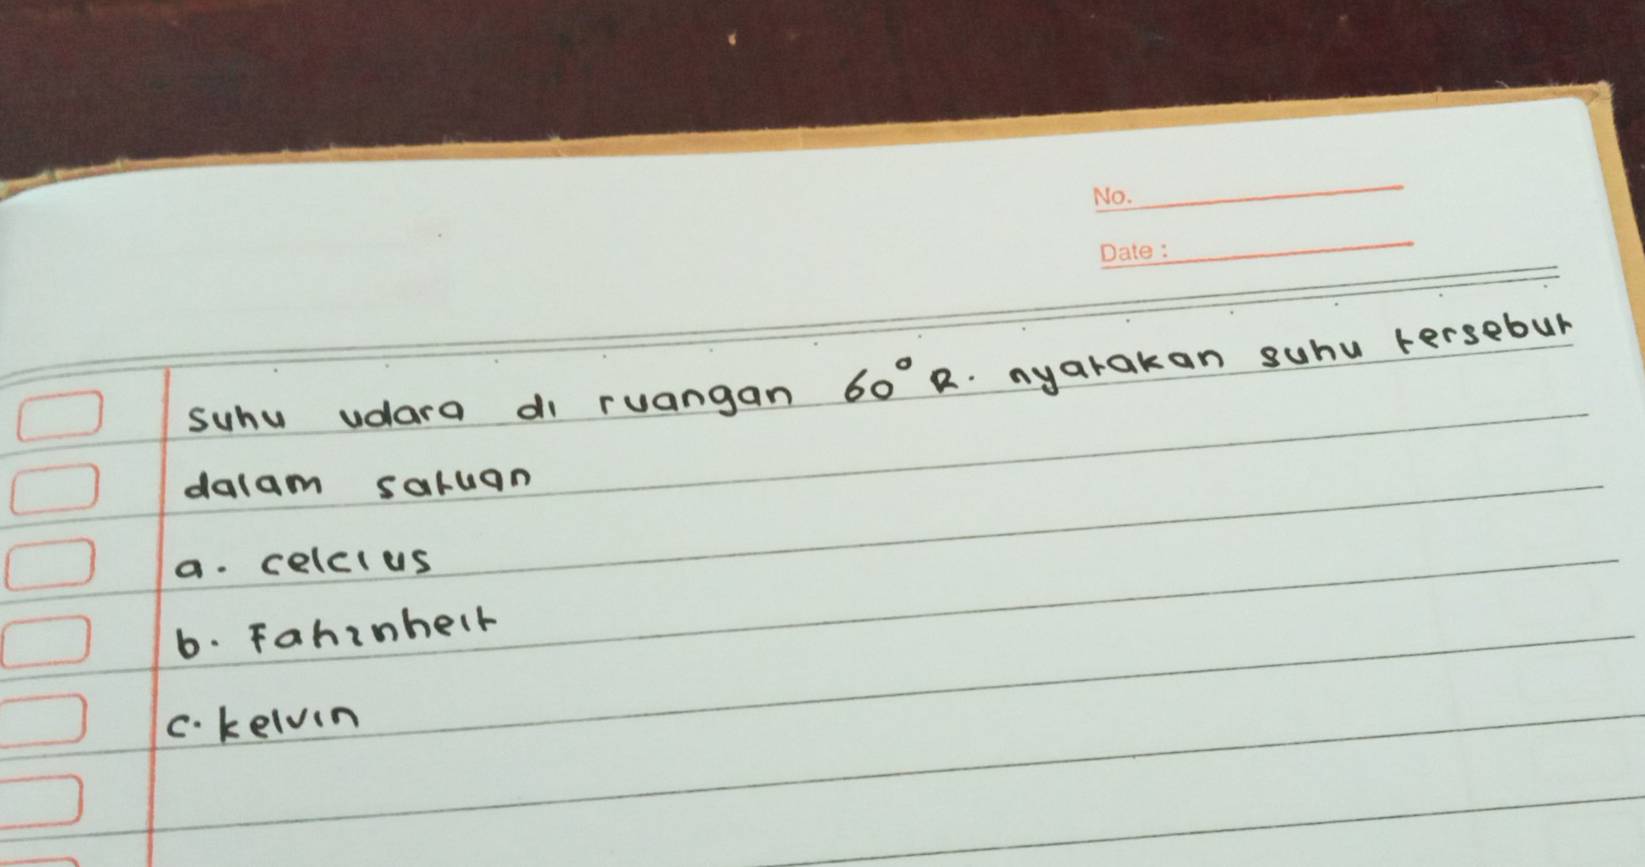 No.
Date :
suhu udara di ruangan 60° R. nyatakan suhu tersebut
dalam satuan
a. celcius
b. Fahrnheit
c. kelvin